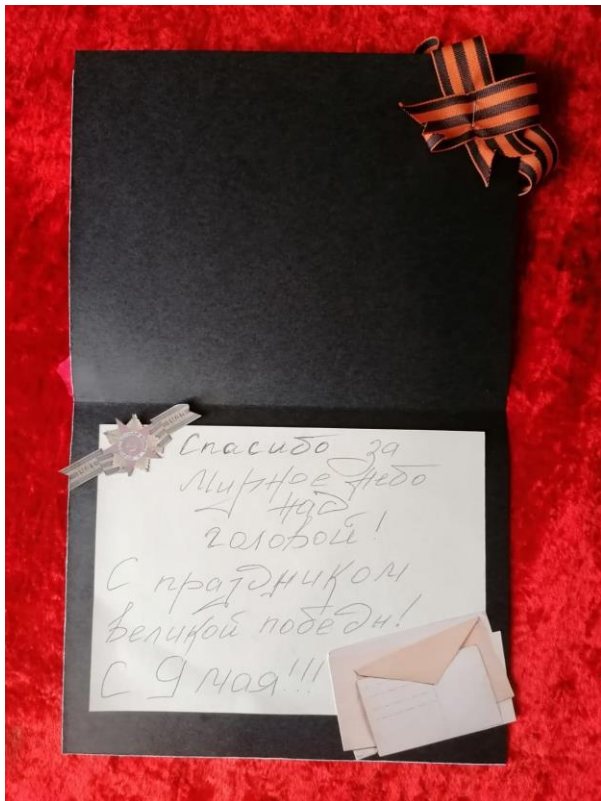 Спасибо за
Мирное небо
над
головой!
С праздником
великой победы!
С 9 мая!!!